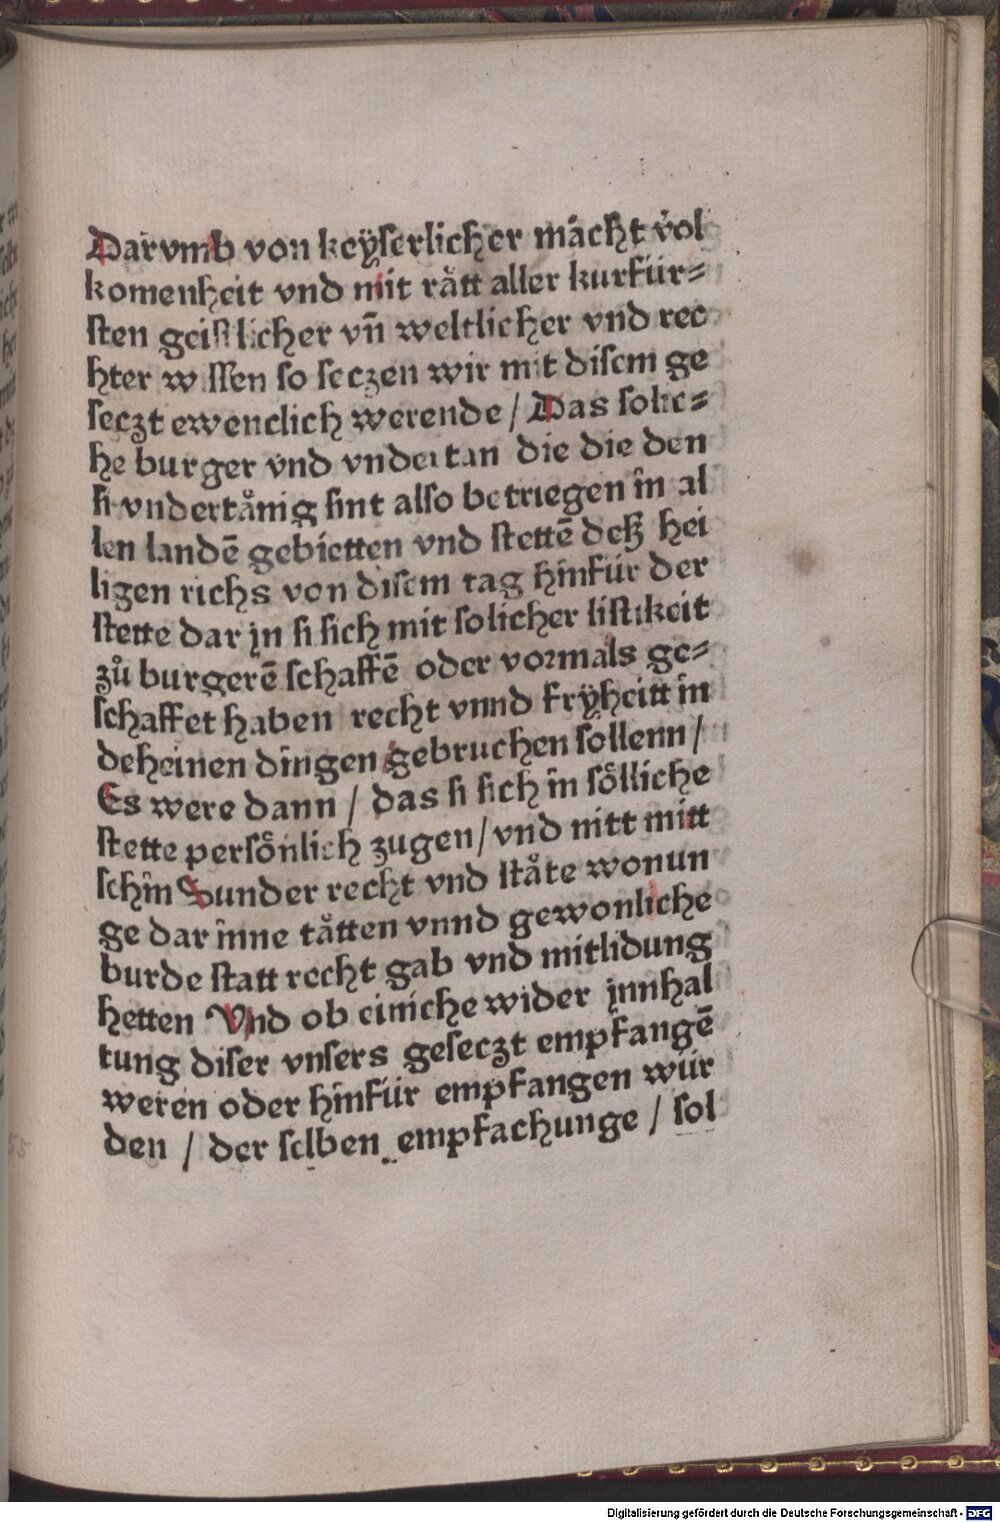 Darvmb von keÿserlicher mächt vͦol
komenheit vnd mit rått aller kurfür=
sten geistlicher vn̄ weltlicher vnd rec
hter wissen so seczen wir mit disem ge
seczt ewenclich werende / Das solic=
he burger vnd vndertan die die den
si vndertånig sint also betriegen în al
len landē gebietten vnd stettē deß hei
ligen richs von disem tag hînfür der
stette dar jn si sich mit solicher listikeit
zů burgerē schaffē oder vormals ge=
schaffet haben recht vnnd frÿheitt în
deheinen dîngen gebruchen söllenn /
Es were dann / das si sich în sölliche
stette persönlich zugen / vnd nitt mitt
schîn Sunder recht vnd ståte wonun
ge dar înne tåtten vnnd gewonliche
burde statt recht gab vnd mitlidung
hetten Vnd ob einiche wider jnnhal
tung diser vnsers geseczt empfangē
weren oder hînfür empfangen wür
den / der selben empfachunge / sol
Digitalisierung gefördert durch die Deutsche Forschungsgemeinschaft - DFG